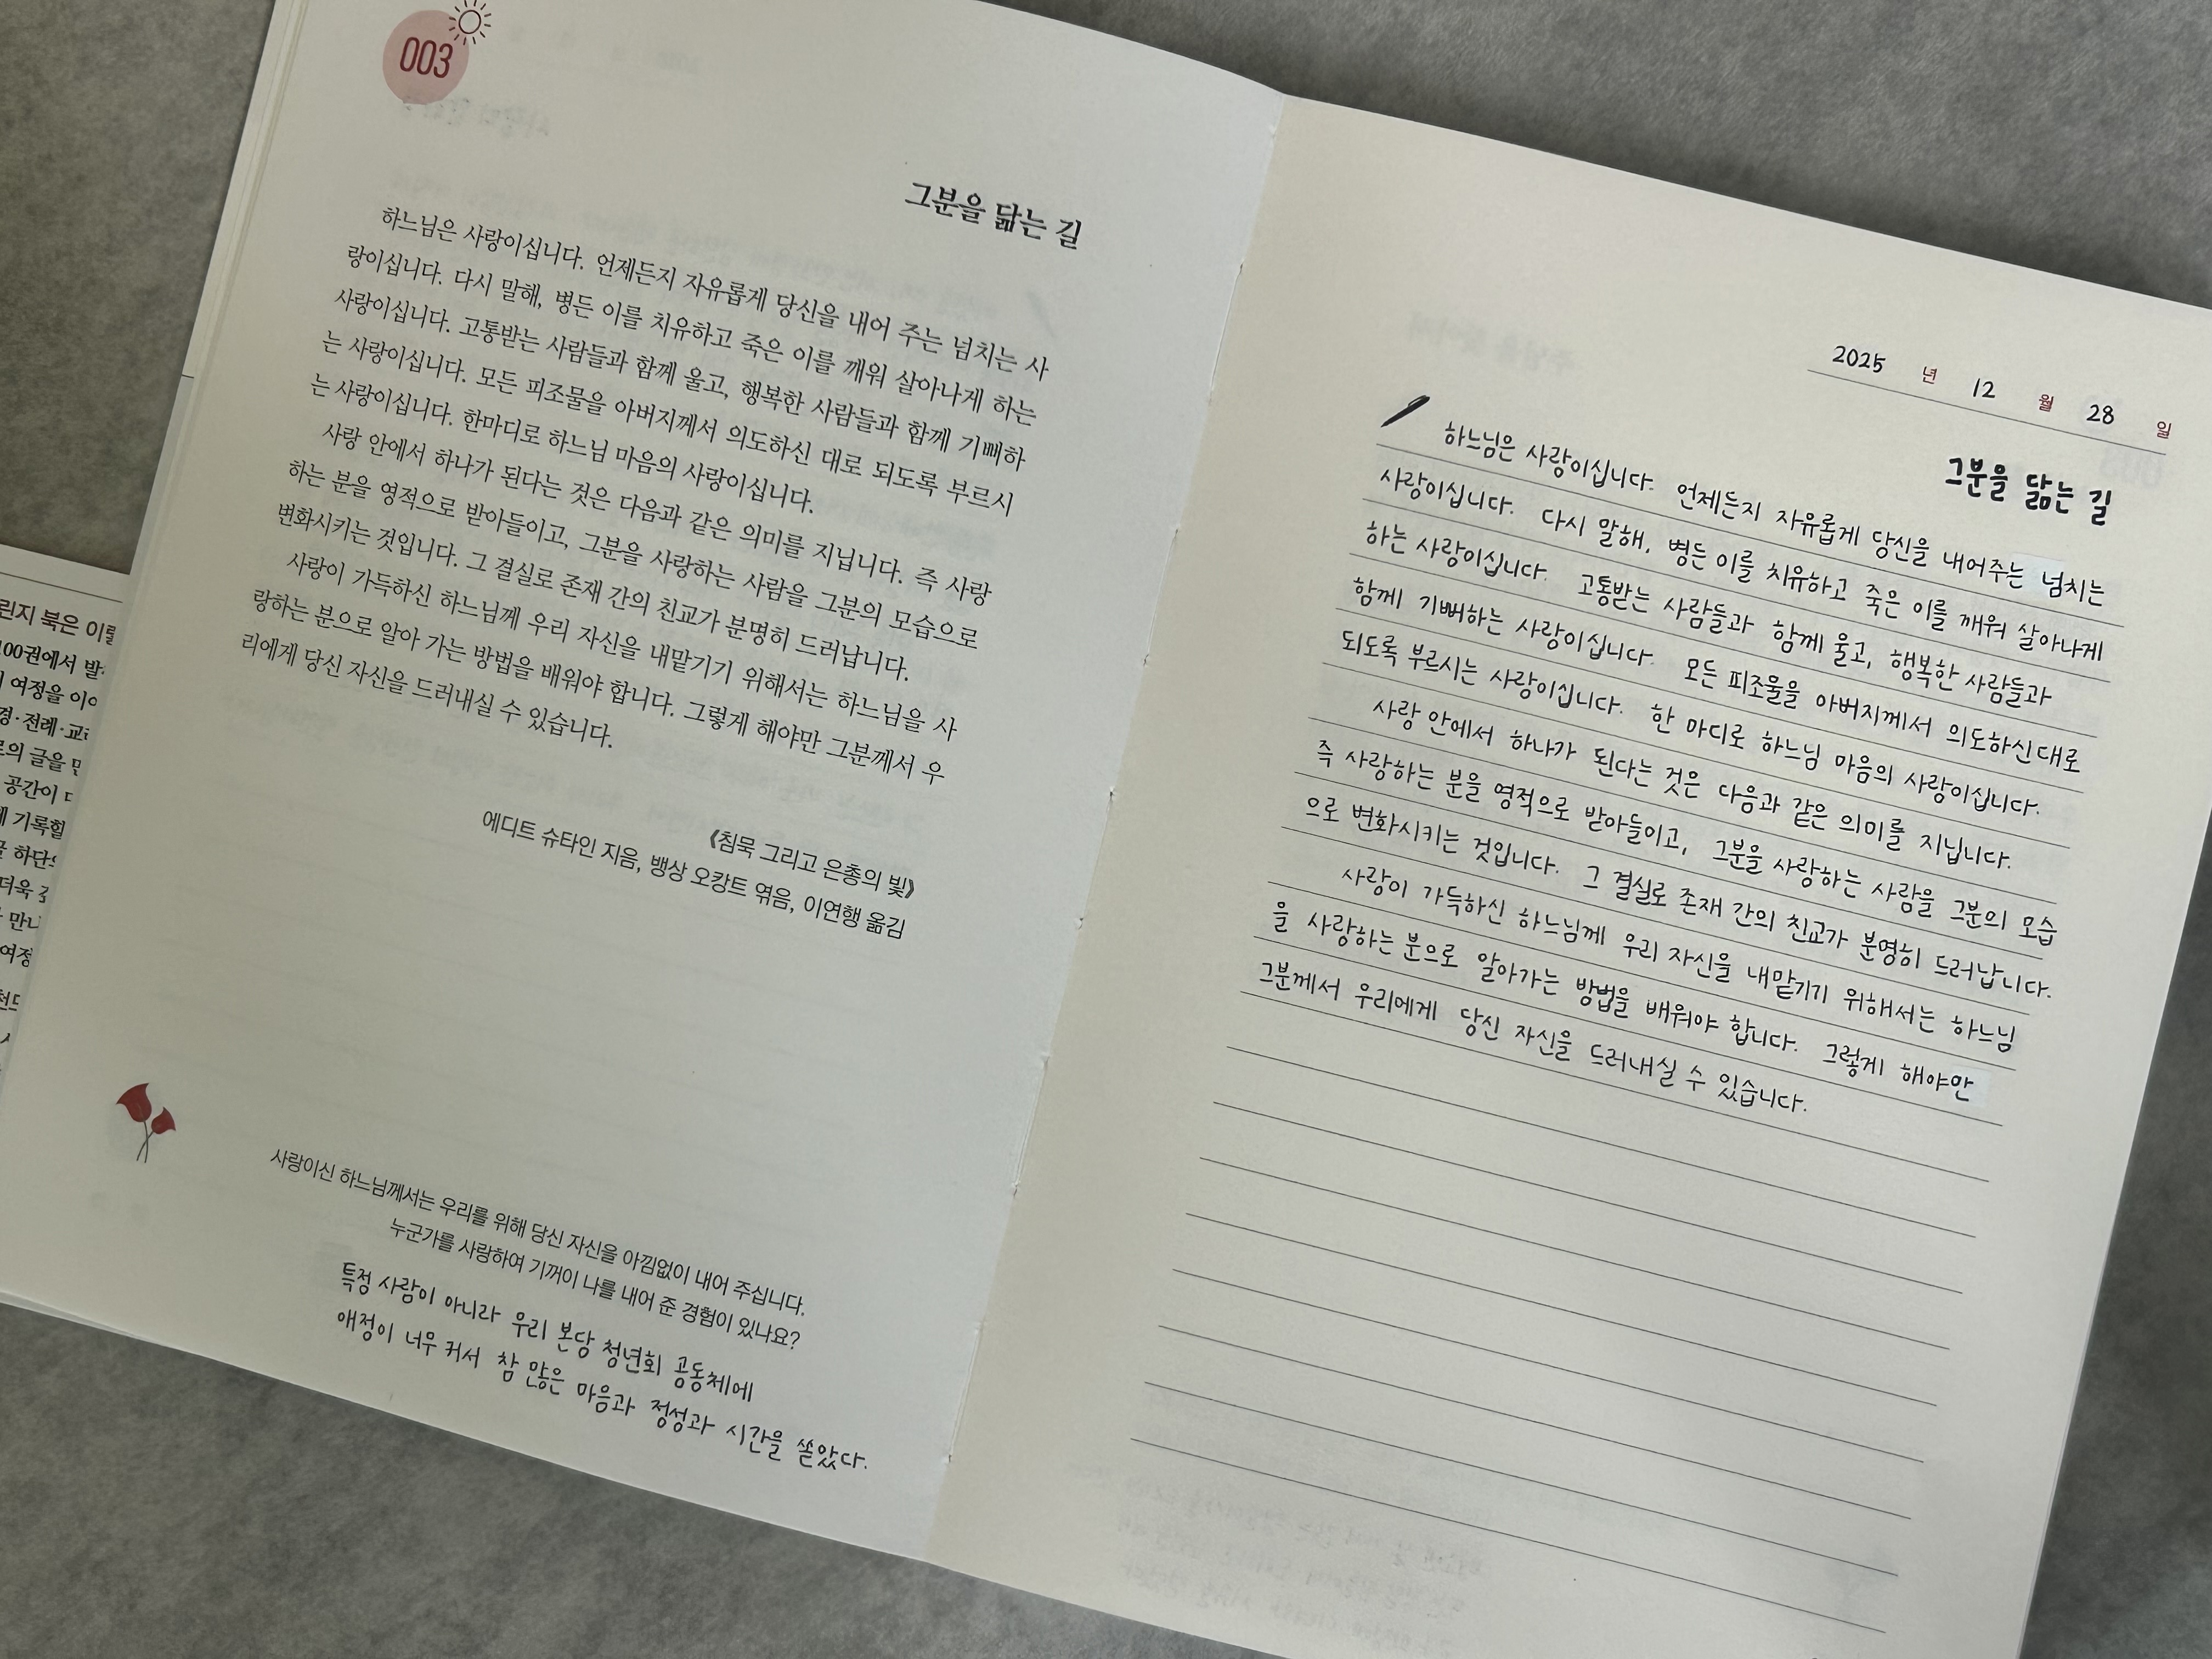 003
그분을 닮는 길
하느님은 사랑이십니다. 언제든지 자유롭게 당신을 내어 주는 넘치는 사
랑이십니다. 다시 말해, 병든 이를 치유하고 죽은 이를 깨워 살아나게 하는
사랑이십니다. 고통받는 사람들과 함께 울고, 행복한 사람들과 함께 기뻐하
는 사랑이십니다. 모든 피조물을 아버지께서 의도하신 대로 되도록 부르시
는 사랑이십니다. 한마디로 하느님 마음의 사랑이십니다.
사랑 안에서 하나가 된다는 것은 다음과 같은 의미를 지닙니다. 즉 사랑
하는 분을 영적으로 받아들이고, 그분을 사랑하는 사람을 그분의 모습으로
변화시키는 것입니다. 그 결실로 존재 간의 친교가 분명히 드러납니다.
사랑이 가득하신 하느님께 우리 자신을 내맡기기 위해서는 하느님을 사
랑하는 분으로 알아 가는 방법을 배워야 합니다. 그렇게 해야만 그분께서 우
리에게 당신 자신을 드러내실 수 있습니다.
《침묵 그리고 은총의 빛》
에디트 슈타인 지음, 뱅상 오캉트 엮음, 이연행 옮김
사랑이신 하느님께서는 우리를 위해 당신 자신을 아낌없이 내어 주십니다.
누군가를 사랑하여 기꺼이 나를 내어 준 경험이 있나요?
특정 사람이 아니라 우리 본당 청년회 공동체에
애정이 너무 커서 참 많은 마음과 정성과 시간을 쏟았다.
린지 북은 이렇
100권에서 발
여정을 이어
경·전례·교리
로의 글을 만
공간이
기록할
글 하단
더욱
만나
여정
2025 년 12 월 28 일
그분을 닮는 길
하느님은 사랑이십니다. 언제든지 자유롭게 당신을 내어주는 넘치는
사랑이십니다. 다시 말해, 병든 이를 치유하고 죽은 이를 깨워 살아나게
하는 사랑이십니다. 고통받는 사람들과 함께 울고, 행복한 사람들과
함께 기뻐하는 사랑이십니다. 모든 피조물을 아버지께서 의도하신대로
되도록 부르시는 사랑이십니다. 한 마디로 하느님 마음의 사랑이십니다.
사랑 안에서 하나가 된다는 것은 다음과 같은 의미를 지닙니다.
즉 사랑하는 분을 영적으로 받아들이고, 그분을 사랑하는 사람을 그분의 모습
으로 변화시키는 것입니다. 그 결실로 존재 간의 친교가 분명히 드러납니다.
사랑이 가득하신 하느님께 우리 자신을 내맡기기 위해서는 하느님
을 사랑하는 분으로 알아가는 방법을 배워야 합니다. 그렇게 해야만
그분께서 우리에게 당신 자신을 드러내실 수 있습니다.